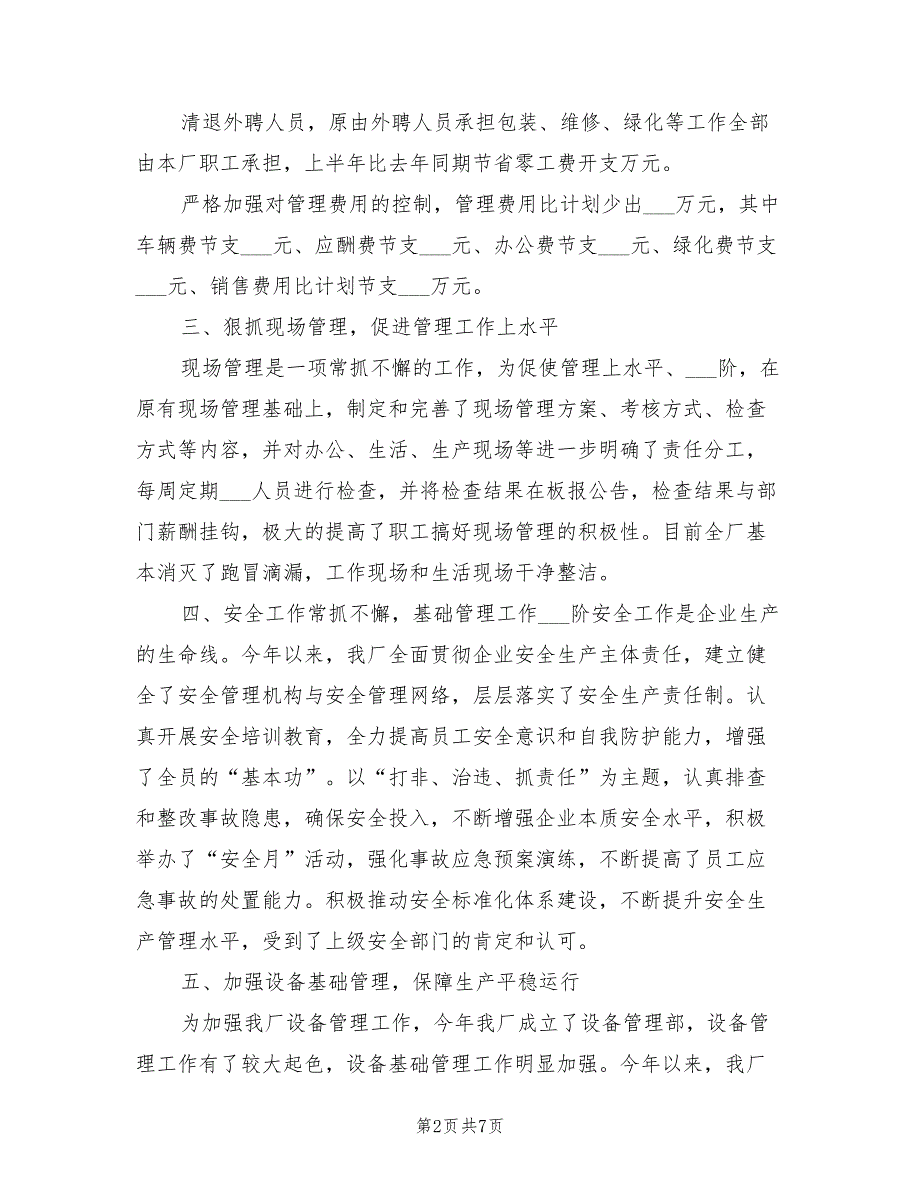 清退外聘人员，原由外聘人员承担包装、维修、绿化等工作全部
由本厂职工承担，上半年比去年同期节省零工费开支万元。
严格加强对管理费用的控制，管理费用比计划少出___万元，其中
车辆费节支___元、应酬费节支___元、办公费节支___元、绿化费节支
___元、销售费用比计划节支___万元。
三、狠抓现场管理，促进管理工作上水平
现场管理是一项常抓不懈的工作，为促使管理上水平、___阶，在
原有现场管理基础上，制定和完善了现场管理方案、考核方式、检查
方式等内容，并对办公、生活、生产现场等进一步明确了责任分工，
每周定期___人员进行检查，并将检查结果在板报公告，检查结果与部
门薪酬挂钩，极大的提高了职工搞好现场管理的积极性。目前全厂基
本消灭了跑冒滴漏，工作现场和生活现场干净整洁。
四、安全工作常抓不懈，基础管理工作___阶安全工作是企业生产
的生命线。今年以来，我厂全面贯彻企业安全生产主体责任，建立健
全了安全管理机构与安全管理网络，层层落实了安全生产责任制。认
真开展安全培训教育，全力提高员工安全意识和自我防护能力，增强
了全员的“基本功”。以“打非、治违、抓责任”为主题，认真排查
和整改事故隐患，确保安全投入，不断增强企业本质安全水平，积极
举办了“安全月”活动，强化事故应急预案演练，不断提高了员工应
急事故的处置能力。积极推动安全标准化体系建设，不断提升安全生
产管理水平，受到了上级安全部门的肯定和认可。
五、加强设备基础管理，保障生产平稳运行
为加强我厂设备管理工作，今年我厂成立了设备管理部，设备管
理工作有了较大起色，设备基础管理工作明显加强。今年以来，我厂
第2页共7页